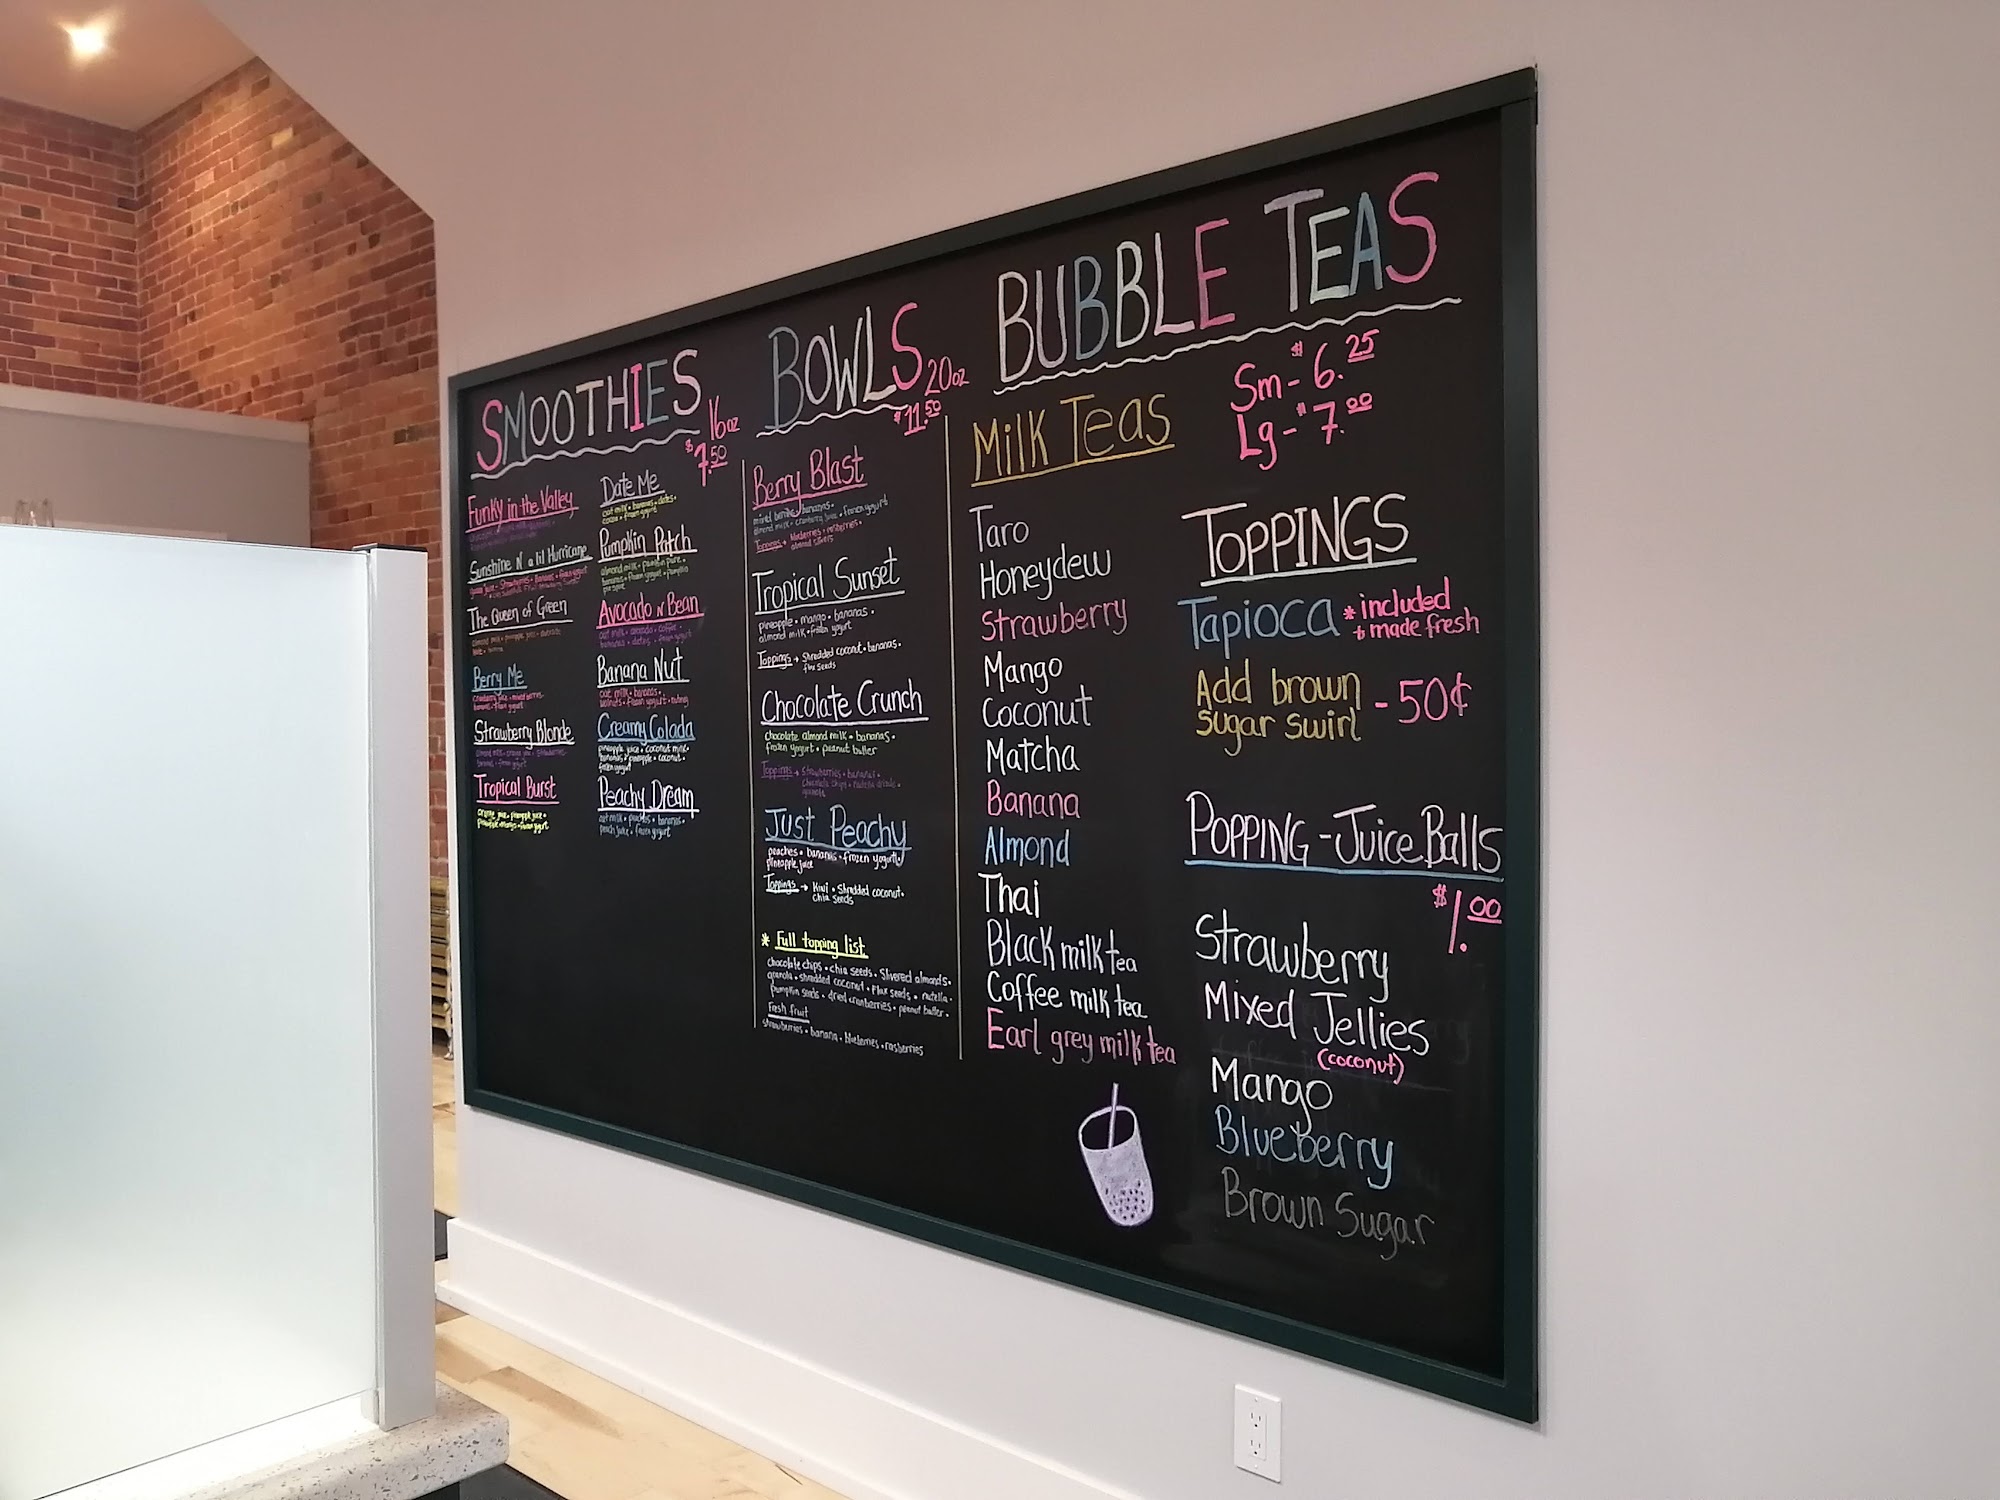 SMOOTHIES
16oz
$7.50
Funky in the Valley
Sunshine N' a lil Hurricane
The Queen of Green
Berry Me
cranberry juice • mixed berries
bananas • frozen yogurt
Strawberry Blonde
Tropical Burst
orange juice • pineapple juice •
pineapple • mango • frozen yogurt
Date Me
oat milk • bananas • dates •
cocoa • frozen yogurt
Pumpkin Patch
almond milk • pumpkin pure •
bananas • frozen yogurt • pumpkin
Avocado N' Bean
oat milk • avocado • coffee •
bananas • dates • frozen yogurt
Banana Nut
oat milk • bananas •
walnuts • frozen yogurt • nutmeg
Creamy Colada
pineapple juice • coconut milk •
bananas • pineapple • coconut •
frozen yogurt
Peachy Dream
oat milk • peaches • bananas •
peach juice • frozen yogurt
BOWLS
20oz
$11.50
Berry Blast
mixed berries • bananas •
almond milk • cranberry juice • frozen yogurt
Toppings → blueberries • rasberries •
almond slivers
Tropical Sunset
pineapple • mango • bananas •
almond milk • frozen yogurt
Toppings → Shredded coconut • bananas •
flax seeds
Chocolate Crunch
chocolate almond milk • bananas •
frozen yogurt • peanut butter
Toppings → strawberries • bananas •
chocolate chips • nutella drizzle •
granola
Just Peachy
peaches • bananas • frozen yogurt •
pineapple juice
Toppings → Kiwi • Shredded coconut •
chia seeds
* Full topping list
chocolate chips • chia seeds • Slivered almonds •
granola • shredded coconut • flax seeds • nutella •
pumpkin seeds • dried cranberries • peanut butter •
Fresh fruit
strawberries • banana • blueberries • rasberries
BUBBLE TEAS
Sm - $6.25
Lg - $7.00
Milk Teas
Taro
Honeydew
Strawberry
Mango
Coconut
Matcha
Banana
Almond
Thai
Black milk tea
Coffee milk tea
Earl grey milk tea
TOPPINGS
Tapioca * included
+ made fresh
Add brown
sugar swirl - 50¢
POPPING - Juice Balls
$1.00
Strawberry
Mixed Jellies
(coconut)
Mango
Blueberry
Brown Sugar